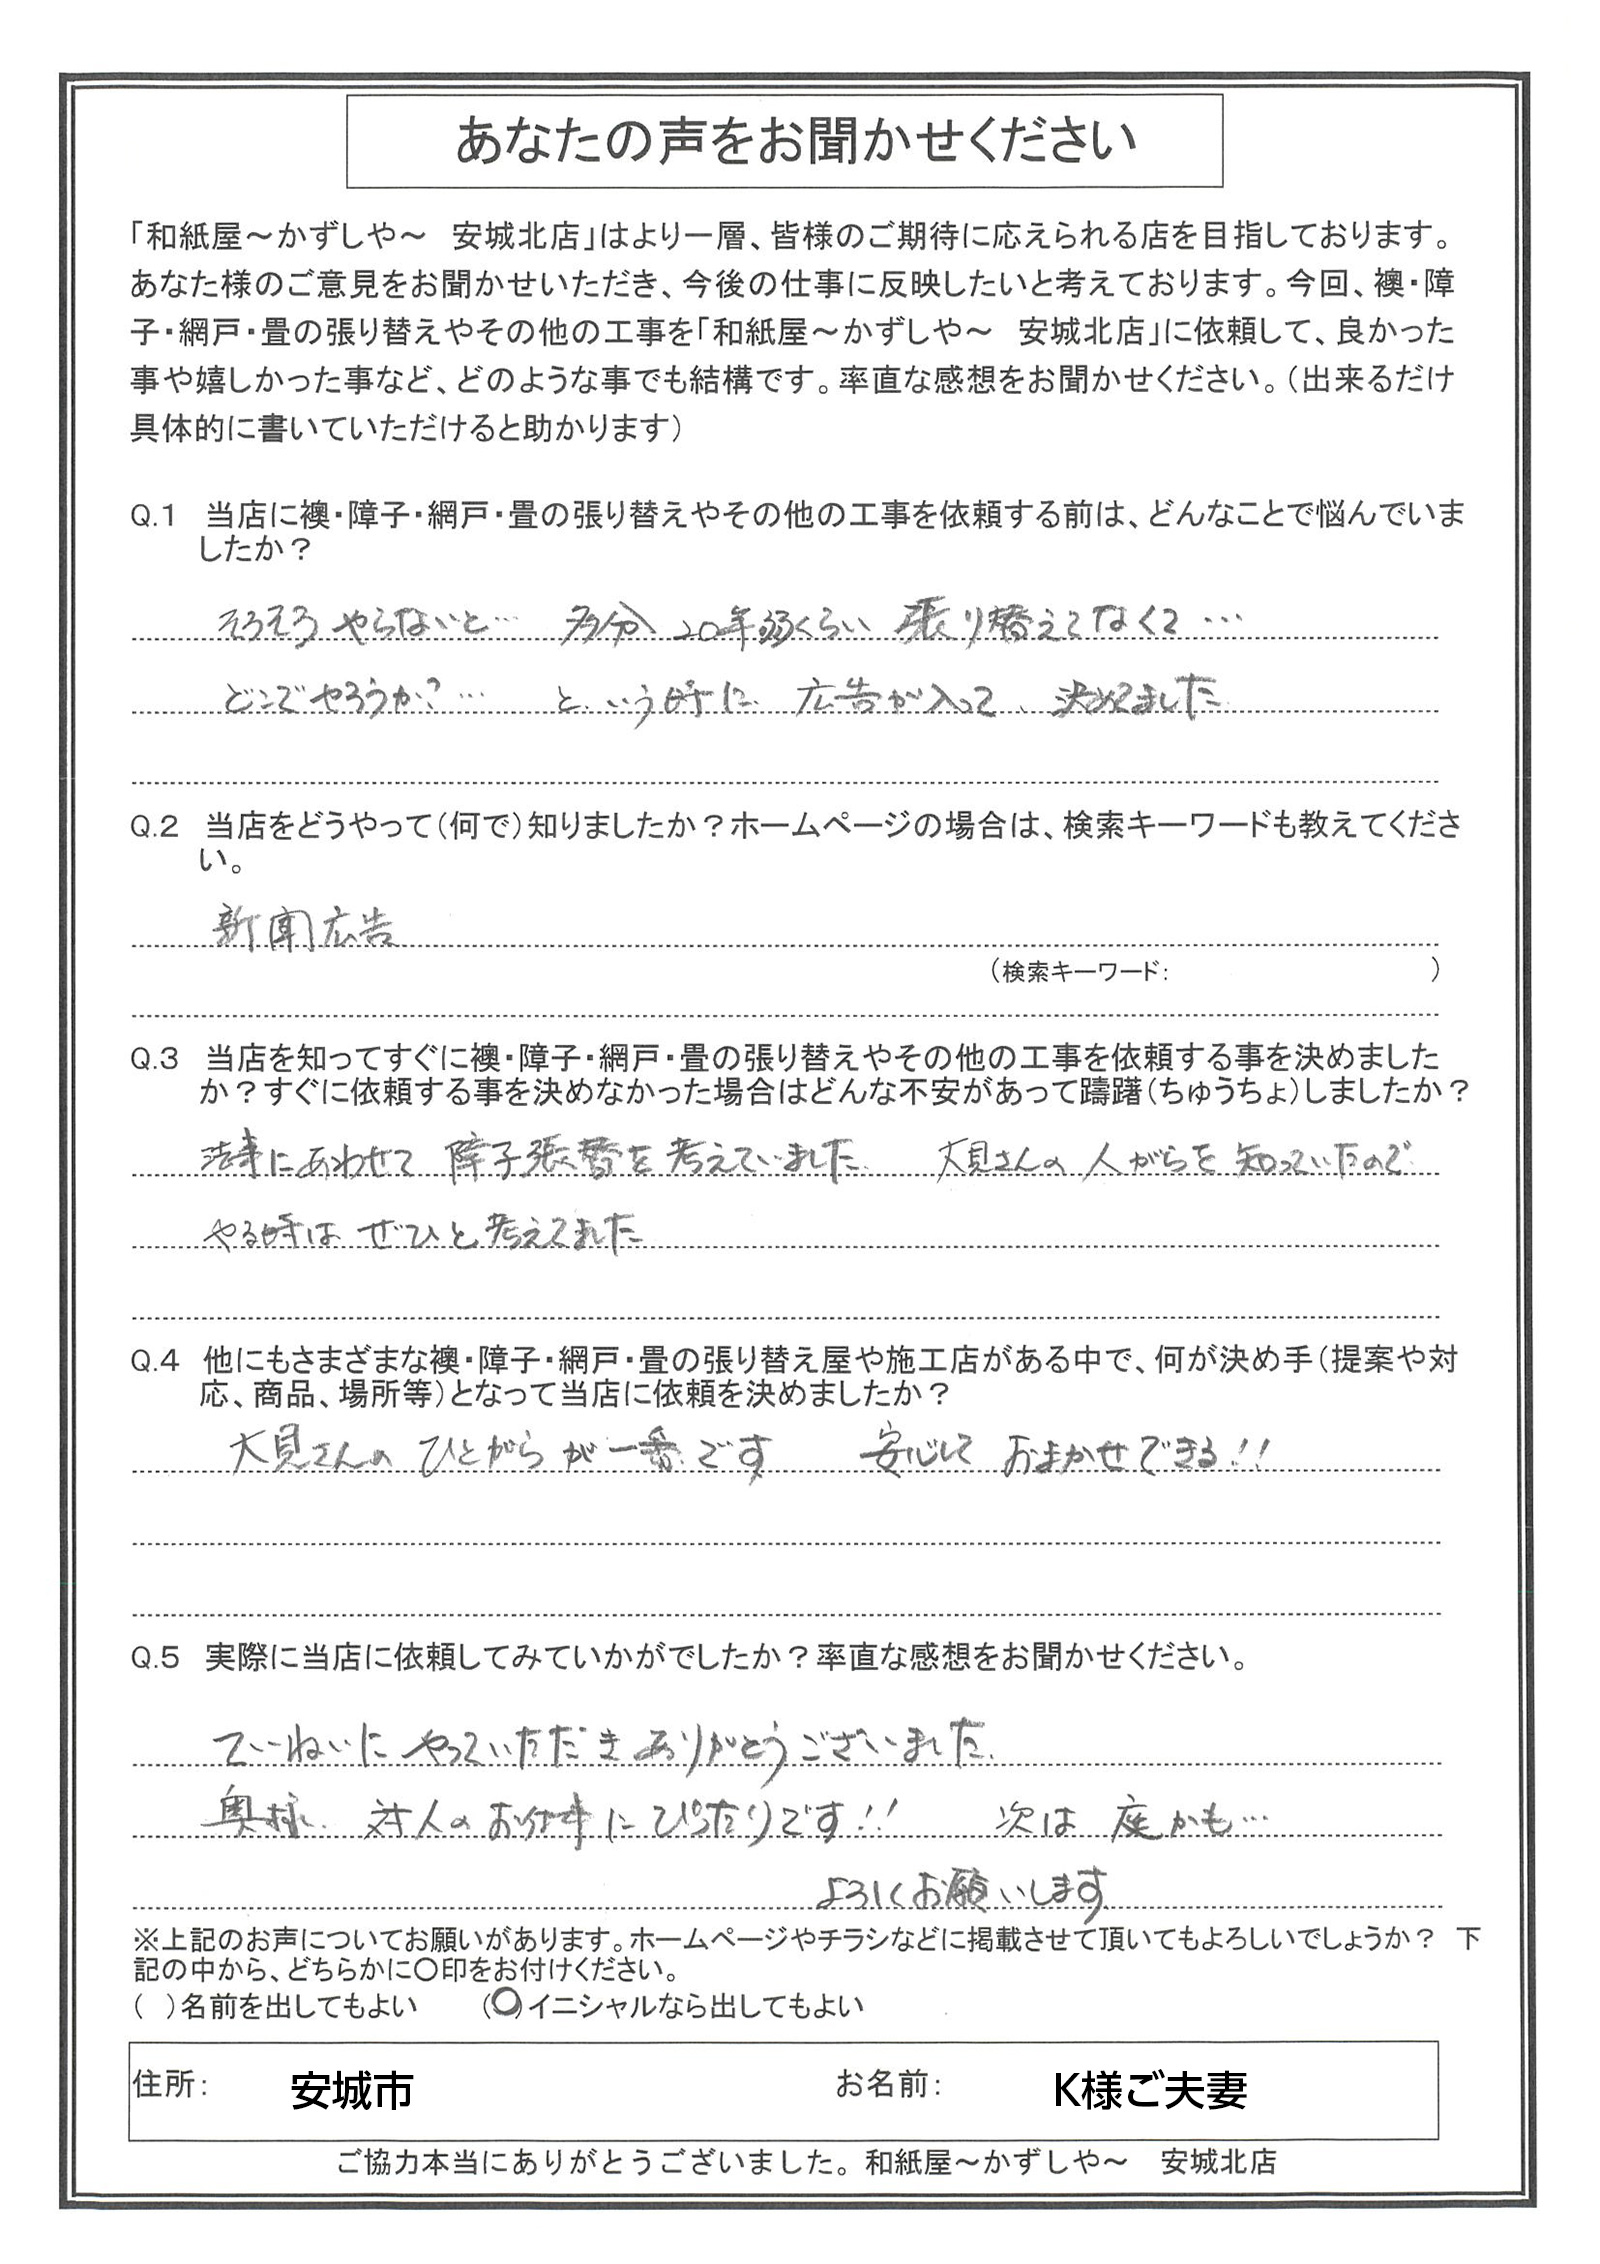 あなたの声をお聞かせください
「和紙屋～かずしや～　安城北店」はより一層、皆様のご期待に応えられる店を目指しております。
あなた様のご意見をお聞かせいただき、今後の仕事に反映したいと考えております。今回、襖・障
子・網戸・畳の張り替えやその他の工事を「和紙屋～かずしや～　安城北店」に依頼して、良かった
事や嬉しかった事など、どのような事でも結構です。率直な感想をお聞かせください。（出来るだけ
具体的に書いていただけると助かります）
Q.1　当店に襖・障子・網戸・畳の張り替えやその他の工事を依頼する前は、どんなことで悩んでいま
したか？
そろそろやらないと… 多分 20年弱くらい 張り替えてなくて…
どこでやろうか?… という時に 広告が入って、決めてました
Q.2　当店をどうやって（何で）知りましたか？ホームページの場合は、検索キーワードも教えてくださ
い。
新聞広告
（検索キーワード：　　　　　）
Q.3　当店を知ってすぐに襖・障子・網戸・畳の張り替えやその他の工事を依頼する事を決めました
か？すぐに依頼する事を決めなかった場合はどんな不安があって躊躇（ちゅうちょ）しましたか？
法事にあわせて 障子張替を考えていました 大見さんの人がらを知っていたので
やる時は ぜひと考えてました
Q.4　他にもさまざまな襖・障子・網戸・畳の張り替え屋や施工店がある中で、何が決め手（提案や対
応、商品、場所等）となって当店に依頼を決めましたか？
大見さんの ひとがらが一番です 安心して おまかせできる!!
Q.5　実際に当店に依頼してみていかがでしたか？率直な感想をお聞かせください。
てぃーねいに やっていただき ありがとうございました。
奥様、対人のお仕事にぴったりです!! 次は 庭かも…
よろしくお願いします
※上記のお声についてお願いがあります。ホームページやチラシなどに掲載させて頂いてもよろしいでしょうか？　下
記の中から、どちらかに〇印をお付けください。
（　）名前を出してもよい　　（〇）イニシャルなら出してもよい
住所：　安城市　　お名前：　K様ご夫妻
ご協力本当にありがとうございました。和紙屋～かずしや～　安城北店